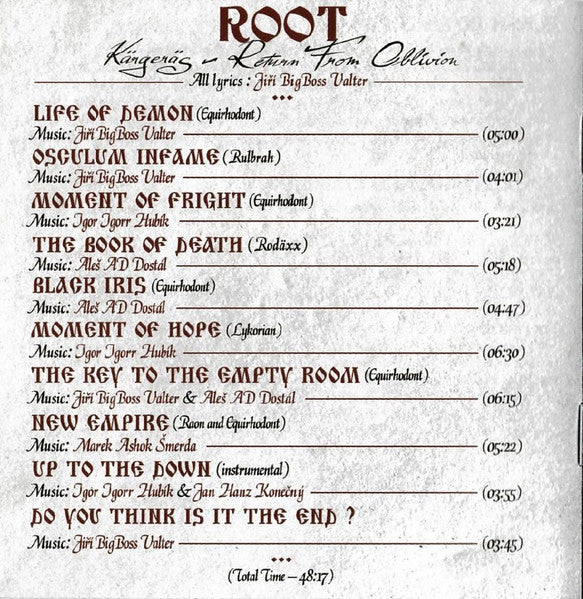 ROOT
Kärgeräs - Return From Oblivion
All lyrics : Jiří BigBoss Valter
LIFE OF DEMON (Equirhodont)
Music: Jiří BigBoss Valter (05:00)
OSCULUM INFAME (Rulbrah)
Music: Jiří BigBoss Valter (04:01)
MOMENT OF FRIGHT (Equirhodont)
Music: Igor Igorr Hubík (03:21)
THE BOOK OF DEATH (Rodäxx)
Music: Aleš AD Dostál (05:18)
BLACK IRIS (Equirhodont)
Music: Aleš AD Dostál (04:47)
MOMENT OF HOPE (Lykorian)
Music: Igor Igorr Hubík (06:30)
THE KEY TO THE EMPTY ROOM (Equirhodont)
Music: Jiří BigBoss Valter & Aleš AD Dostál (06:15)
NEW EMPIRE (Raon and Equirhodont)
Music: Marek Ashok Šmerda (05:22)
UP TO THE DOWN (instrumental)
Music: Igor Igorr Hubík & Jan Hanz Konečný (03:55)
DO YOU THINK IS IT THE END ?
Music: Jiří BigBoss Valter (03:45)
(Total Time – 48:17)